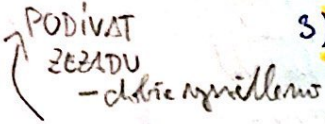 PODÍVAT 3)
ZEZADU
- dobře vysvětleno